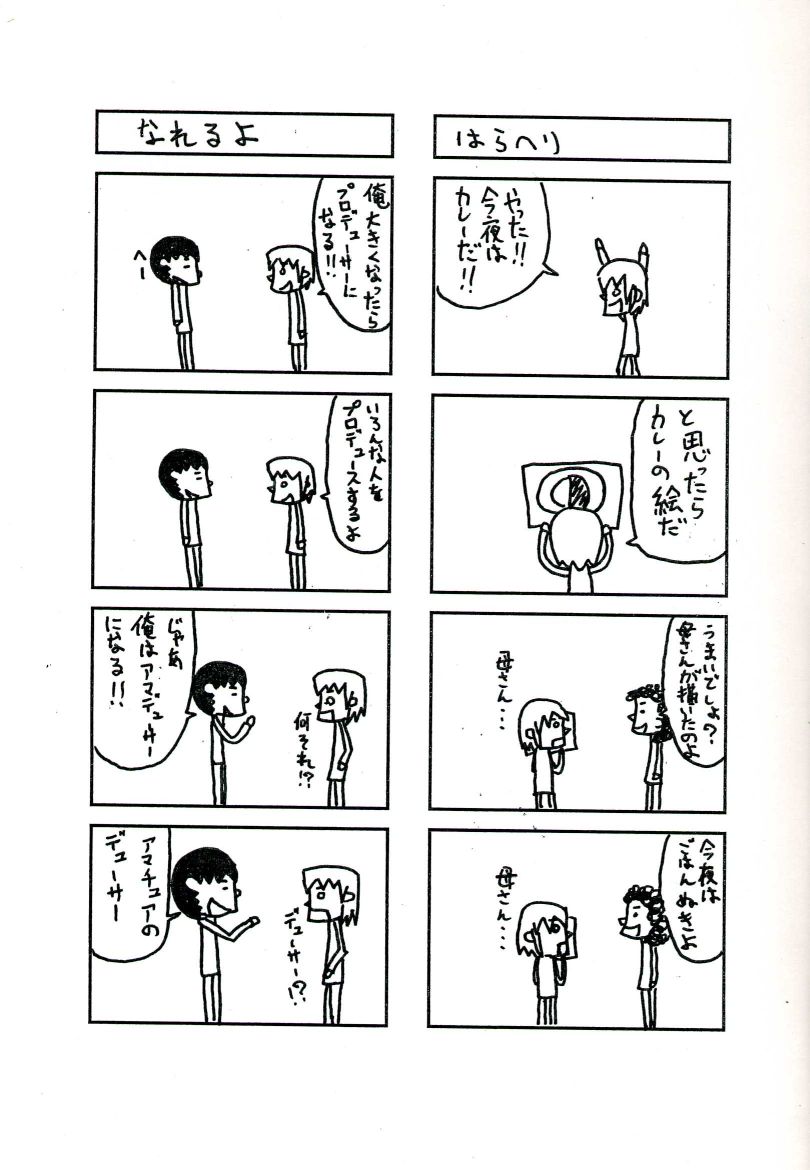 はらへり
やった!!
今夜は
カレーだ!!
と思ったら
カレーの絵だ
うまいでしょ?
母さんが描いたのよ
母さん・・・
今夜は
ごはんぬきよ
母さん・・・
なれるよ
俺大きくなったら
プロデューサーに
なる!!
へー
いろんな人を
プロデュースするよ
じゃあ
俺はアマデューサー
になる!!
何それ!?
アマチュアの
デューサー
デューサー!?